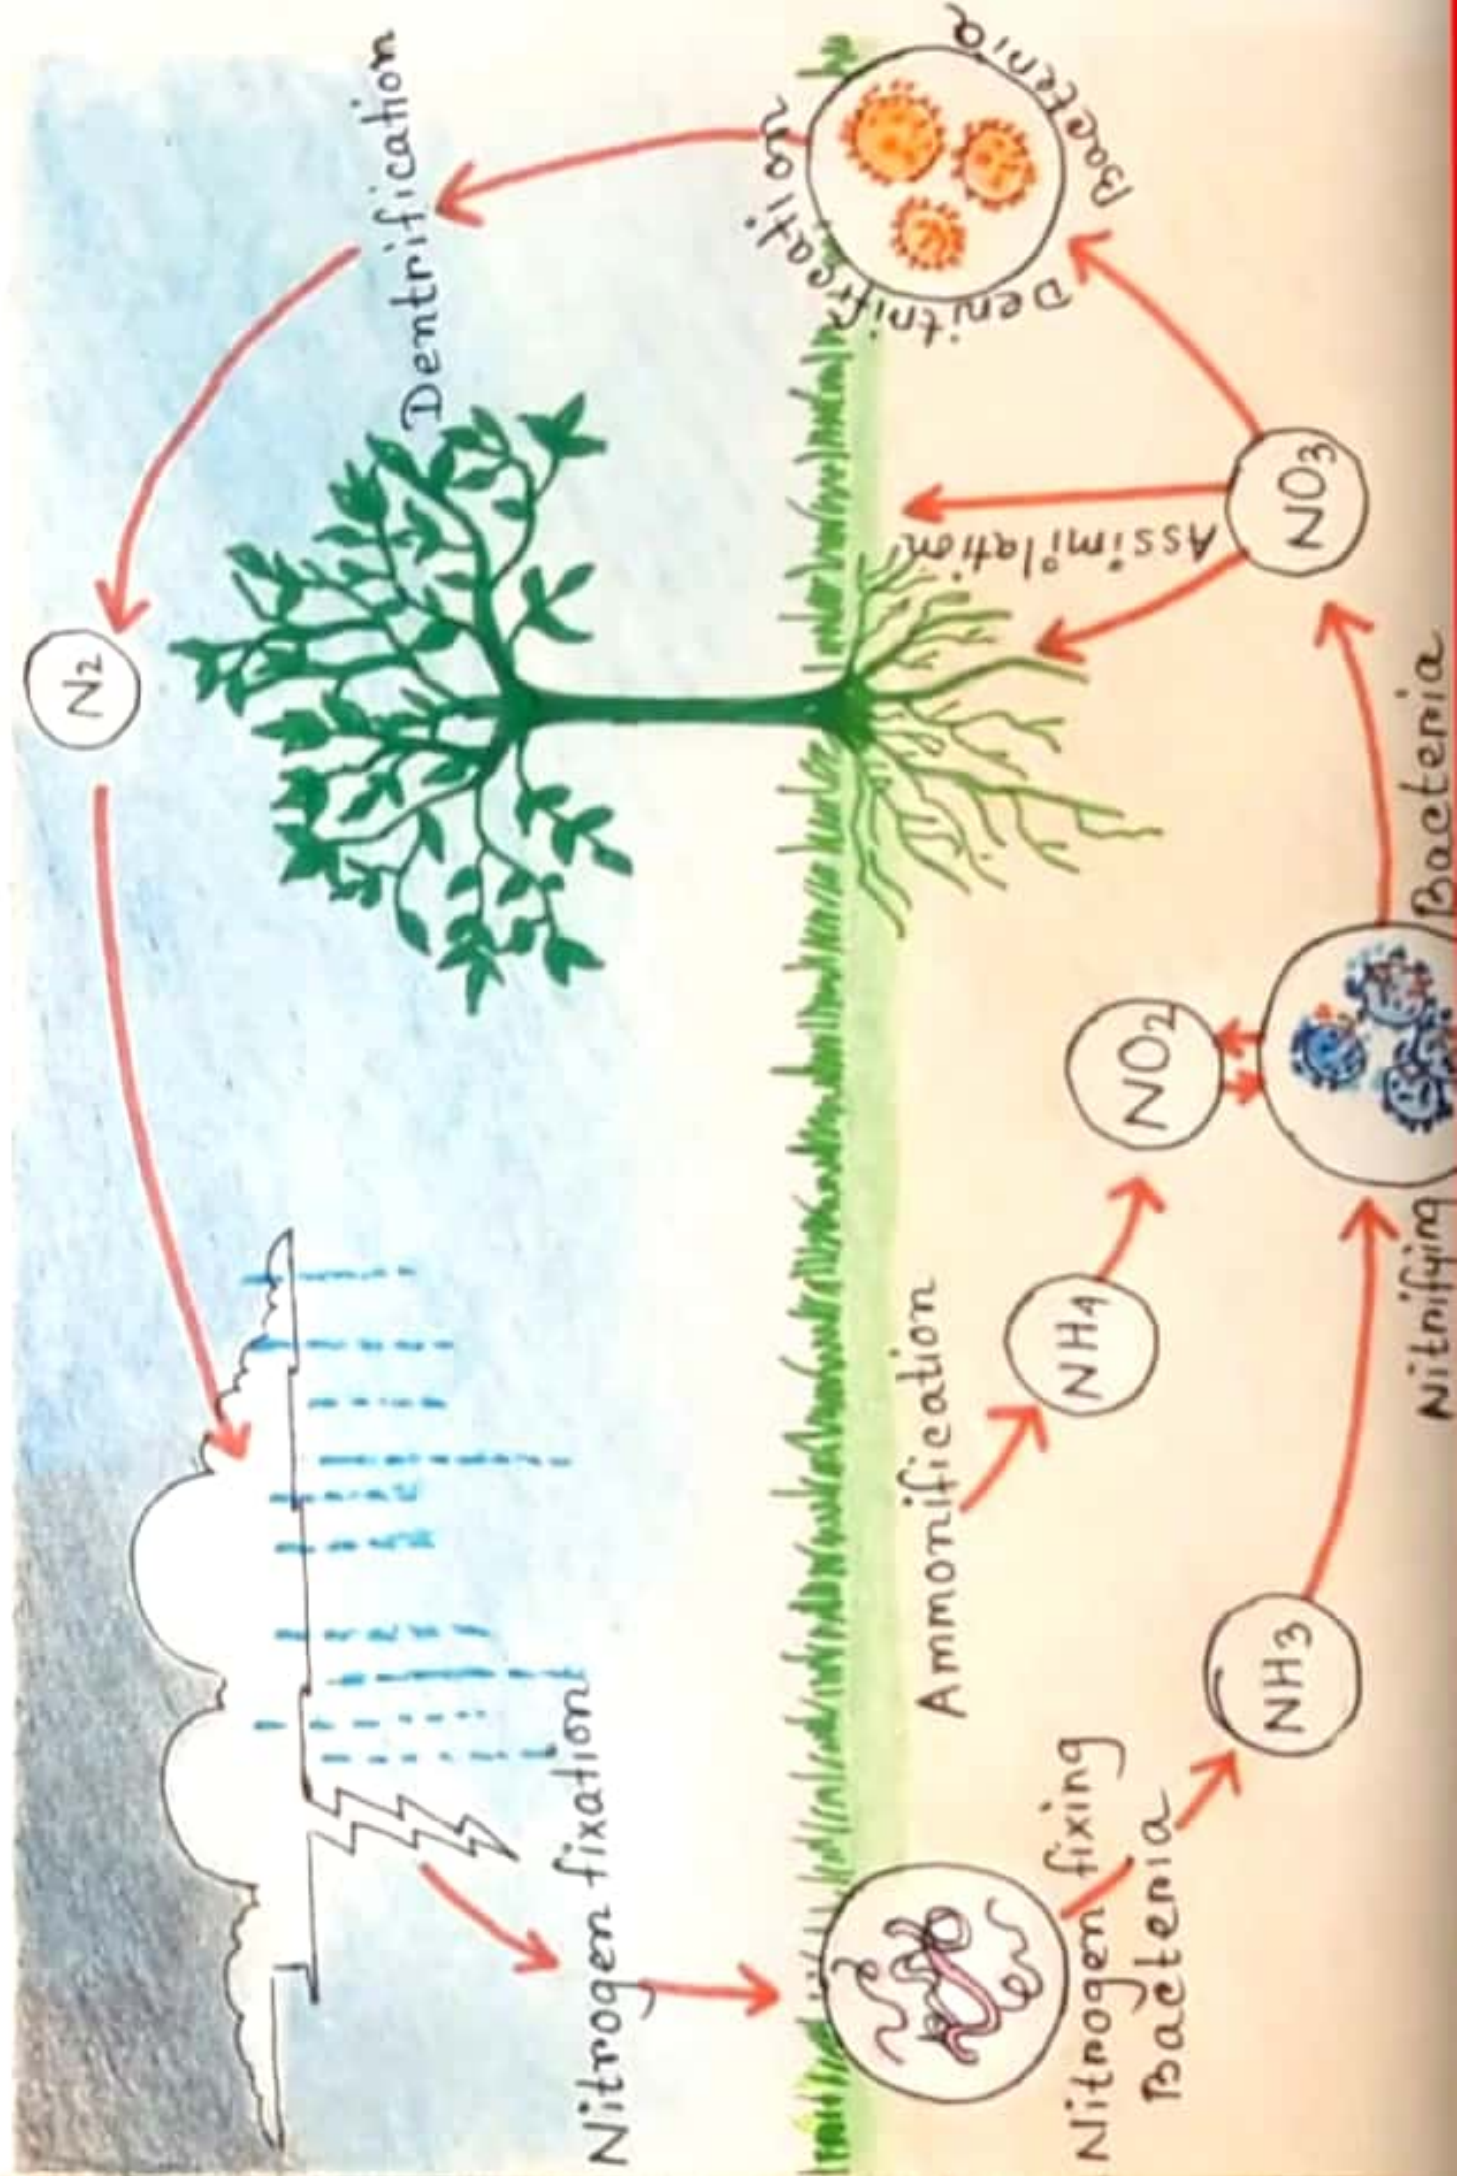 N2
Dentrification
Nitrogen fixation
Denitrification
Bacteria
Assimilation
Ammonification
NO3
NO2
NH4
NH3
Nitrogen fixing
Bacteria
Nitrifying Bacteria